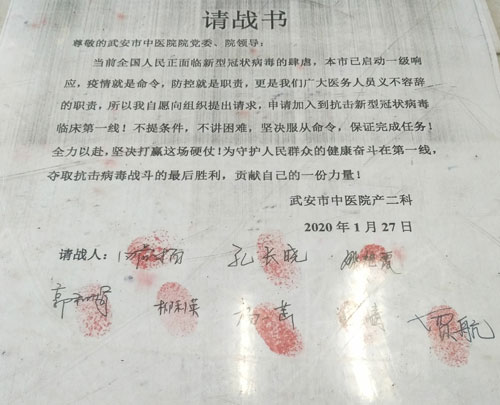 请战书
尊敬的武安市中医院院党委、院领导：
当前全国人民正面临新型冠状病毒的肆虐，本市已启动一级响
应，疫情就是命令，防控就是职责，更是我们广大医务人员义不容辞
的职责，所以我自愿向组织提出请求，申请加入到抗击新型冠状病毒
临床第一线！不提条件，不讲困难，坚决服从命令，保证完成任务！
全力以赴，坚决打赢这场硬仗！为守护人民群众的健康奋斗在第一线，
夺取抗击病毒战斗的最后胜利，贡献自己的一份力量！
武安市中医院产二科
2020年1月27日
请战人： 孔长晓
郭 柳利英 冯苗 贾航